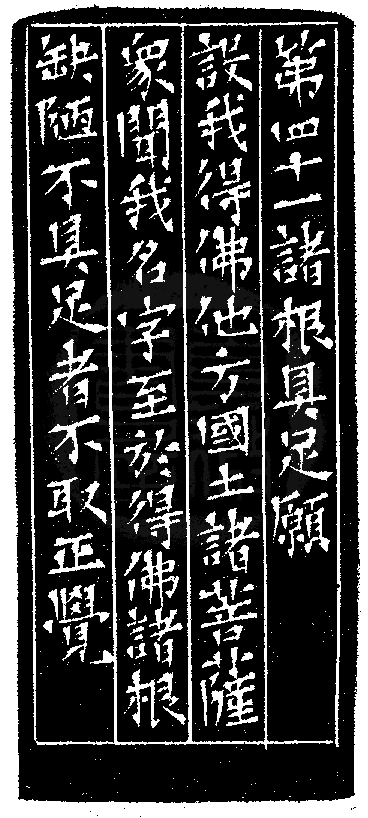 第四十一諸根具足願
設我得佛他方國土諸菩薩
衆聞我名字至於得佛諸根
缺陋不具足者不取正覺